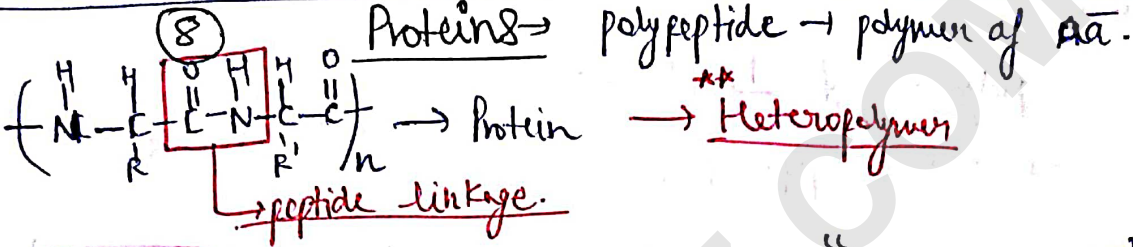 8 Proteins → polypeptide → polymer of Aā.
H H O H H O
( N — C — C — N — C — C )n → Protein → ** Heteropolymer
R R'
→ peptide linkage.